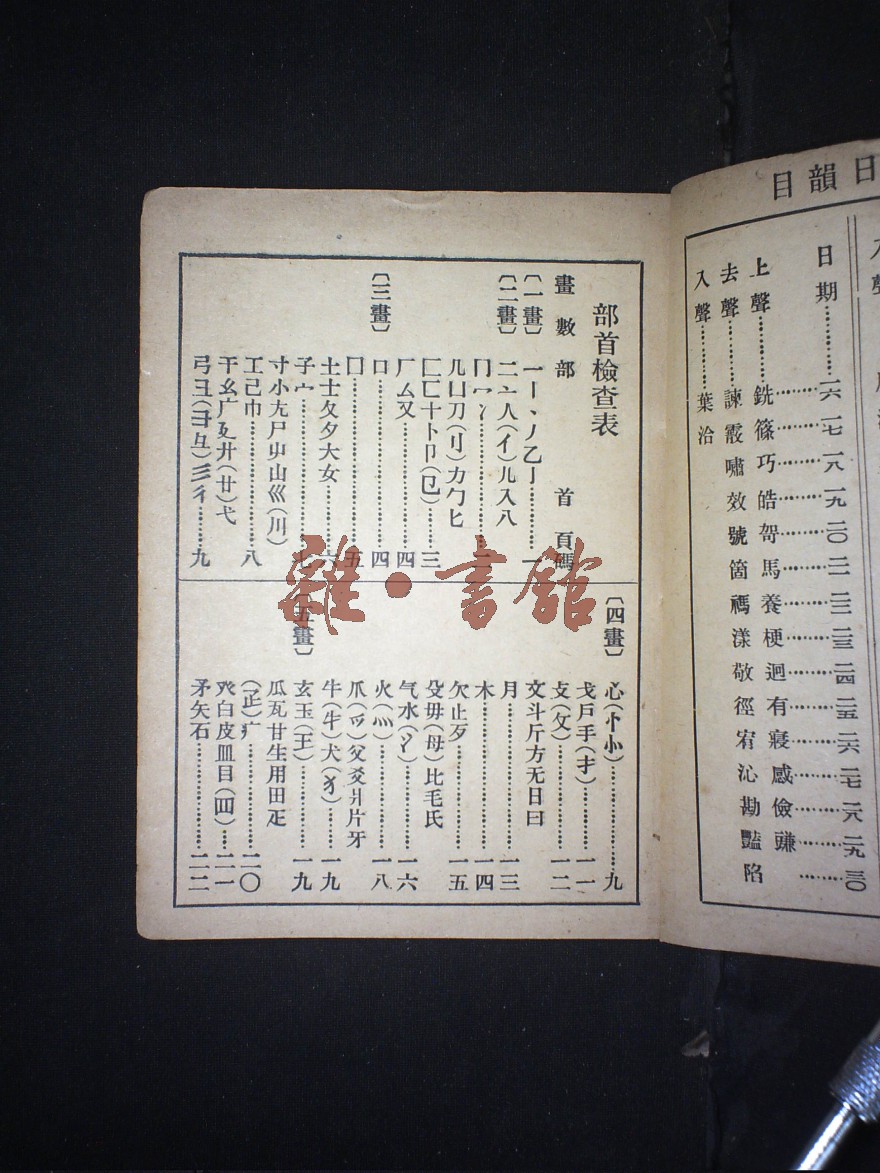 日韻目
入聲
日期…………一六 一七 一八 一九 二〇 二一 二二 二三 二四 二五 二六 二七 二八 二九 三〇
上聲…………銑 篠 巧 皓 哿 馬 養 梗 迥 有 寢 感 儉 豏
去聲…………諫 霰 嘯 效 號 箇 禡 漾 敬 徑 宥 沁 勘 豔 陷
入聲…………葉 洽
部首檢查表
畫數部 首頁碼
〔一畫〕 一丨丶丿乙亅…………一
〔二畫〕 二亠人(亻)儿入八
冂冖冫…………二
几凵刀(刂)力勹匕
匚匸十卜卩(㔾)……三
厂厶又…………四
〔三畫〕 口…………四
囗…………五
土士夂夊夕大女…………六
子宀…………七
寸小尢尸屮山巛(川)
工己巾…………八
干幺广廴廾(廿)弋
弓彐(彑)彡彳……九
〔四畫〕 心(忄㣺)…………九
戈戶手(扌)…………一一
攴(攵)…………一二
文斗斤方无日曰
月…………一三
木…………一四
欠止歹…………一五
殳毋(母)比毛氏
气水(氵)…………一六
火(灬)…………一八
爪(爫)父爻爿片牙
牛(牜)犬(犭)…………一九
〔五畫〕 玄玉(王)…………一九
瓜瓦甘生用田疋
(𤴔)疒…………二〇
癶白皮皿目(罒)……二一
矛矢石…………二二
雜·書館